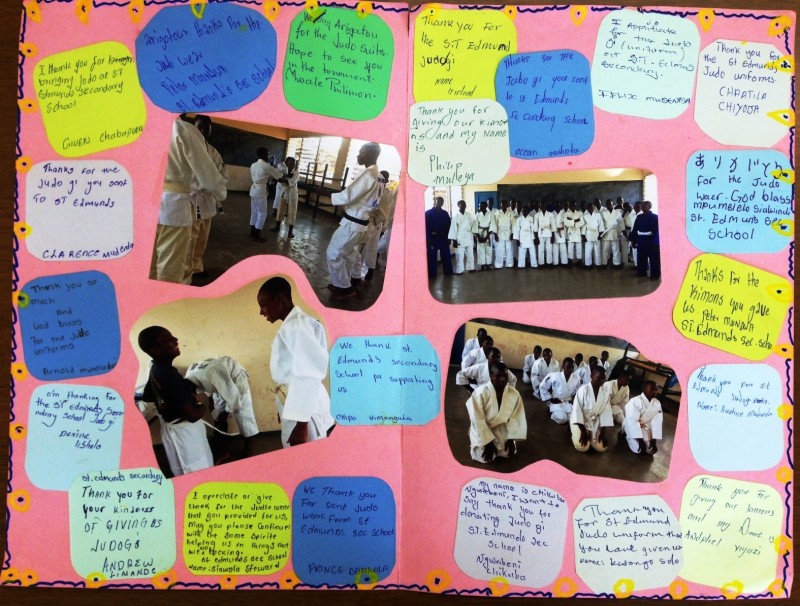 I thank you for
bringing Judo at ST
Edmunds secondary
school
GIVEN Chabapura
Arigatou thanks for the
Judo wear
St Edmund's Sec School
Arigatou
for the Judo suits.
Hope to see you
in the tonament.
Mwale Philimon.
Thank you For
the S.T Edmund
judogi
Name
Thanks for the
Judo gi your sent
to St Edmunds
Secondary school
I Appriciate
for the Judo
Uniforms
at ST. Edmunds
Secondary.
FELIX MUSONDA
Thank you for
the St Edmunds
Judo uniforms
CHARTILA
CHIYOJA
Thank you for
giving our kimonos
and my Name
is
Philip
Mulleya
Thanks for the
Judo gi you sent
to ST EDMUNDS
CLARENCE Mudenda
for the Judo
waer. God blass
Mpumelelo Sialwindi
St. Edmunds sec
School
Thank you so
much
and
God bless
for the Judo
uniforms
Arnold
Thanks For the
Kimons you gave
us Peter
ST. Edmunds Sec. Scho
We thank st.
Edmund's secondary
School for supporting
us
Chipo Himangulu
I'm thanking For
the ST Edmunds Seco-
ndary School Judo gi
Thank you for St
Edmund Judogi
Name:
St. Edmunds secondary
Thank you for
your kindness
OF GIVING US
JUDOGI
ANDREW
LIMANDE
I apreciate or give
thank for the Judo wear
that you provided for us.
May you please continue
with the same spirite
helping us in things that
we
St Edmunds sec School
Name: Siawala Steward
We Thank you
For sent Judo
wear From ST
Edmunds sec School
PRINCE
My name is Chikuba
Ngwabeni, I want to
say thank you for
donating Judo gi
ST. Edmunds Sec
School
Ngwabeni
Chikuba
Thank you
For St Edmund
Judo uniform that
you have given us
Name: Katongo Solo
Thank you For
giving our kimons
and my Name is